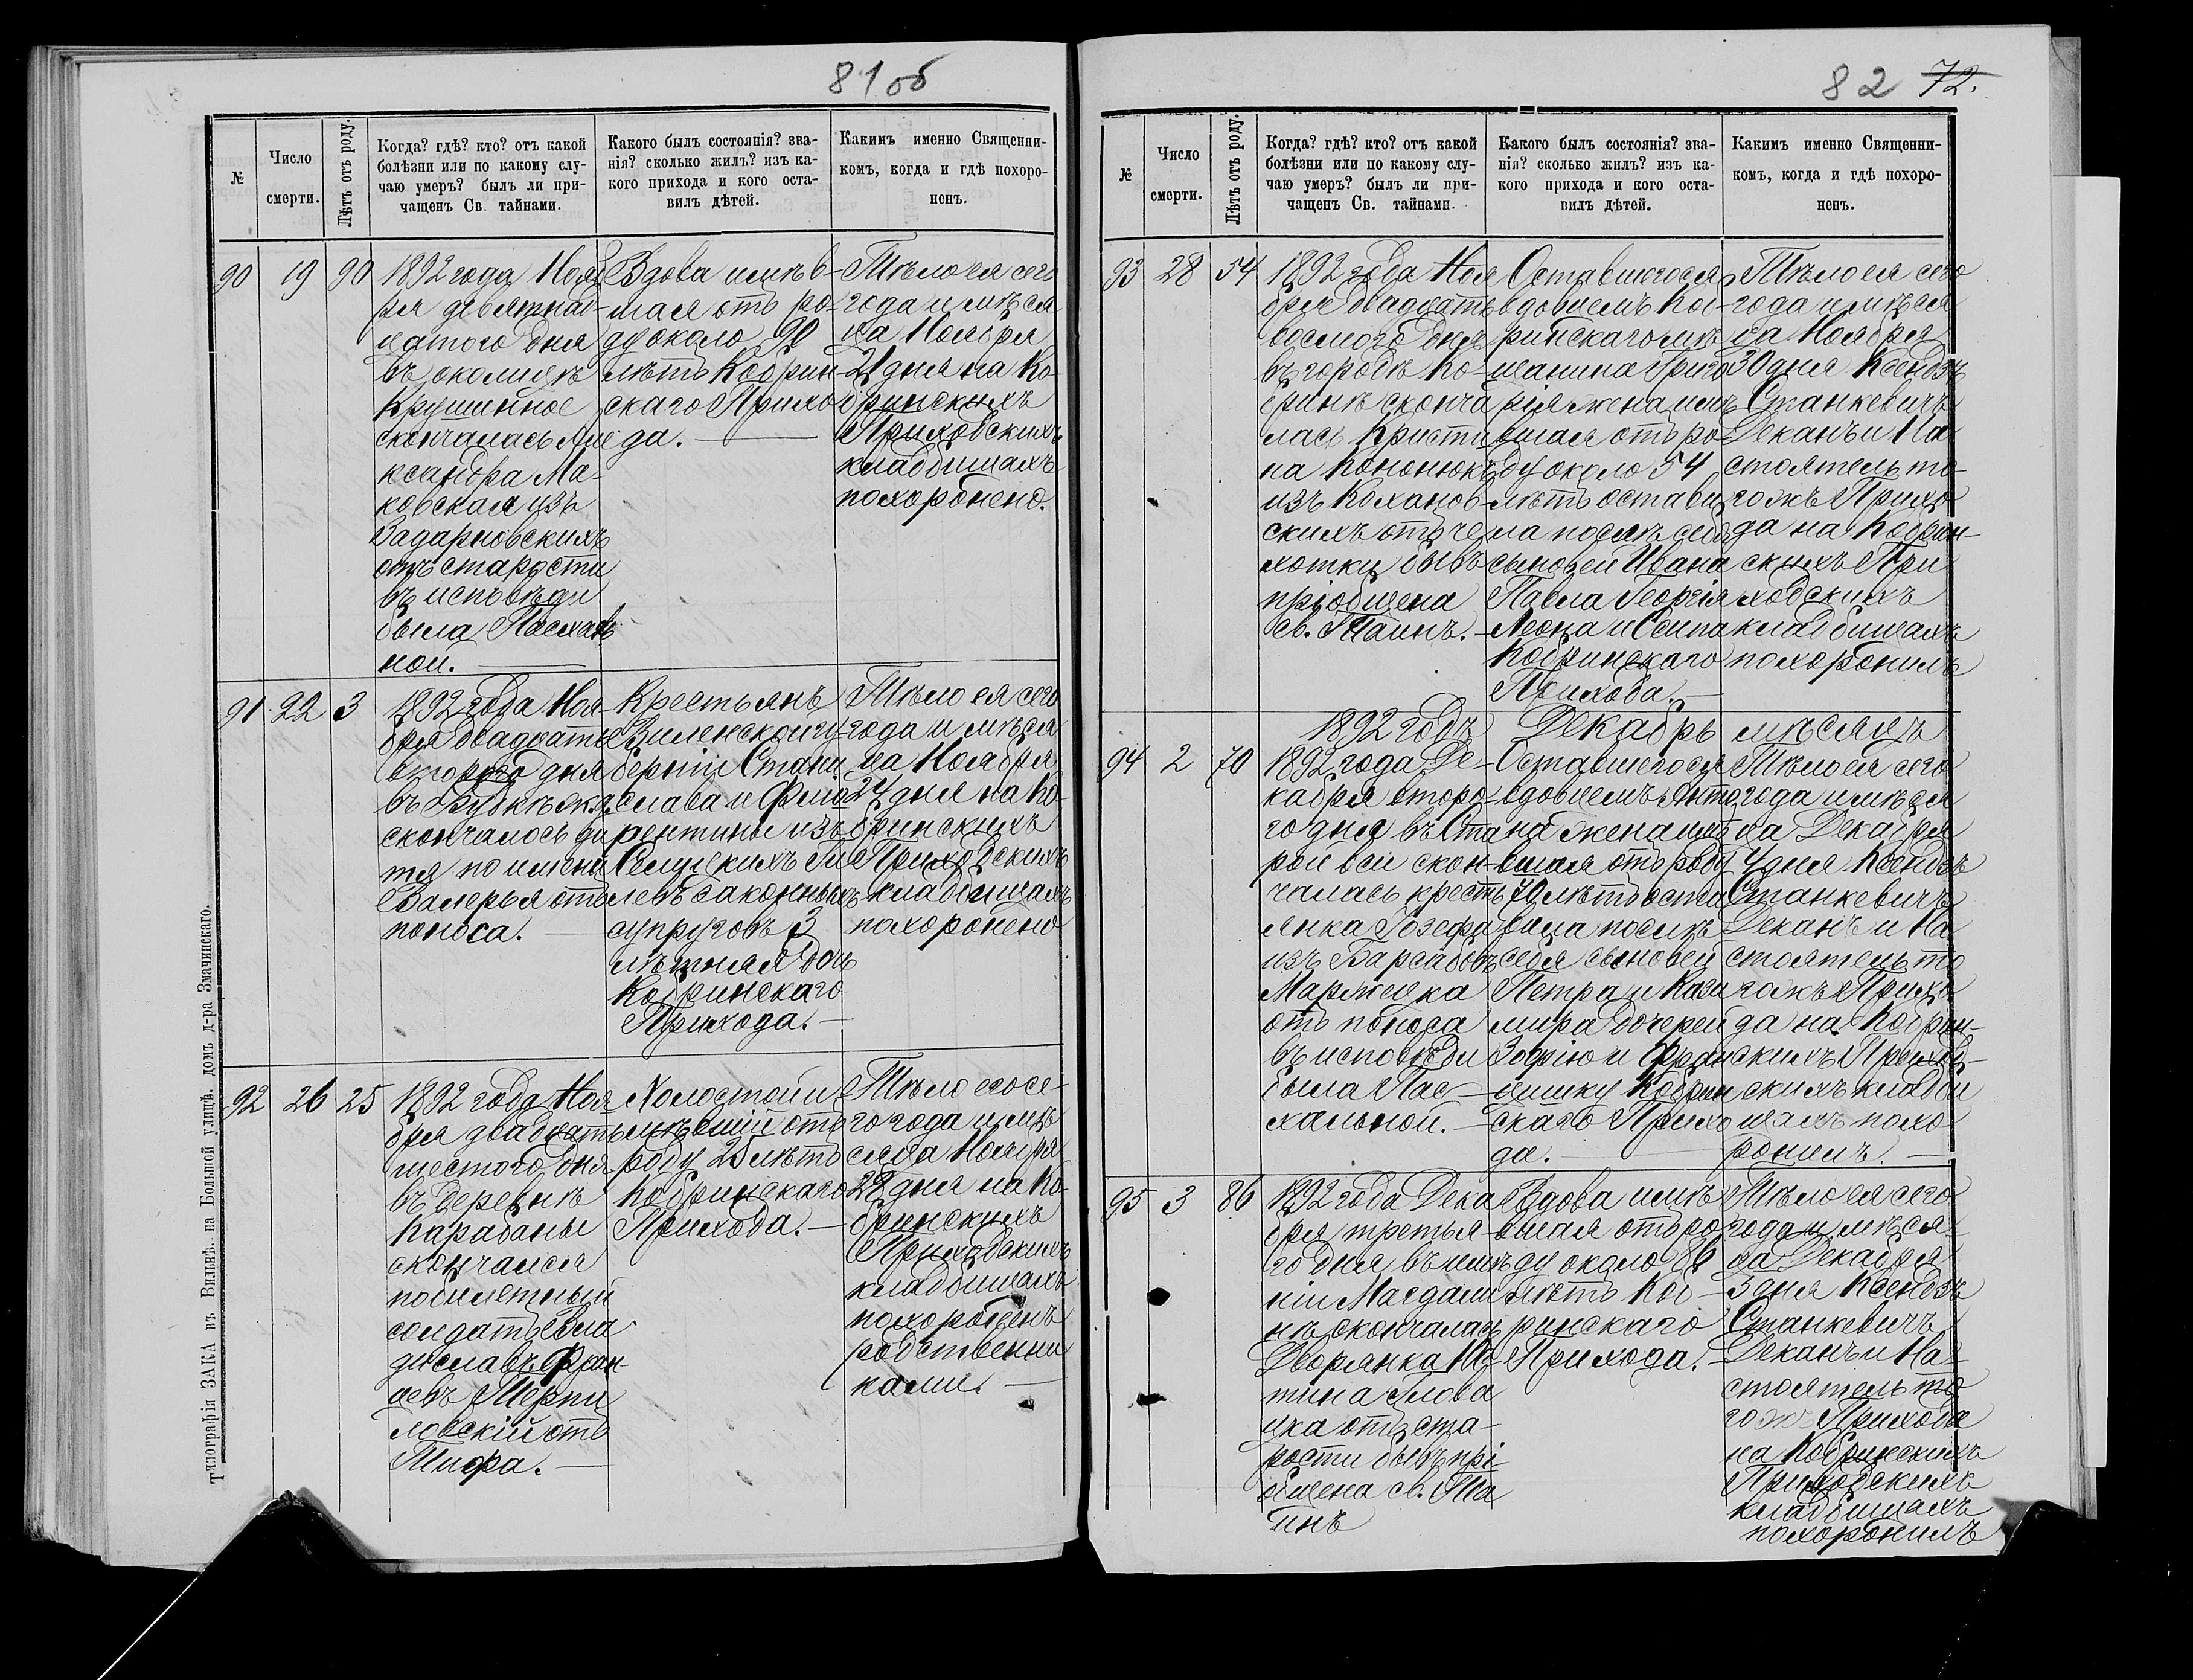 81об
№
Число
смерти.
Лѣтъ отъ роду.
Когда? гдѣ? кто? отъ какой
болѣзни или по какому слу-
чаю умеръ? былъ ли при-
чащенъ Св. тайнами.
Какого былъ состоянія? зва-
нія? сколько жилъ? изъ ка-
кого прихода и кого оста-
вилъ дѣтей.
Какимъ именно Священни-
комъ, когда и гдѣ похоро-
ненъ.
90
19
90
1892 года Нояб
ря девятнад-
цатого дня
въ околицѣ
Крушинное
скончалась Але
ксандра Ма-
ковская изъ
Задарновскихъ
отъ старости
въ исповѣди
была Пасхаль
ной.
Вдова имѣв-
шая отъ ро-
ду около 90
лѣтъ Кобрин-
скаго Прихо
да.
Тѣло ея сего
года и мѣся
ца Ноября
21 дня на Ко-
бринскихъ
Приходскихъ
кладбищахъ
похоронено.
91
22
3
1892 года Ноя-
бря двадцать
второго дня
скончалось ди
тя по имени
Валерья отъ
поноса.
Крестьянъ
Виленской гу-
берніи Стани
слава и Фло
рентины изъ
левъ законныхъ
супруговъ 3
лѣтняя дочь
Кобринскаго
Прихода.
Тѣло ея сего
года и мѣся
ца Ноября
24 дня на Ко-
бринскихъ
Приходскихъ
кладбищахъ
похоронено
92
26
25
1892 года Ноя-
бря двадцать
шестого дня
въ деревнѣ
Карабаны
скончался
побилетный
солдатъ Вла
диславъ Фран-
цевъ
ловскій отъ
Тифа.
Холостой и
мѣвшій отъ
роду 25 лѣтъ
Кобринскаго
Прихода.
Тѣло его се-
го года и мѣ
сяца Ноября
28 дня на Ко-
бринскихъ
Приходскихъ
кладбищахъ
похороненъ
родственни
ками.
Типографія ЗАКА въ Вильнѣ. на Большой улицѣ. домъ д-ра Змачинскаго.
82 72.
№
Число
смерти.
Лѣтъ отъ роду.
Когда? гдѣ? кто? отъ какой
болѣзни или по какому слу-
чаю умеръ? былъ ли при-
чащенъ Св. тайнами.
Какого былъ состоянія? зва-
нія? сколько жилъ? изъ ка-
кого прихода и кого оста-
вилъ дѣтей.
Какимъ именно Священни-
комъ, когда и гдѣ похоро-
ненъ.
93
28
54
1892 года Ноя
бря двадцать
восмого дня
въ городѣ Ко-
бринѣ сконча
лась Кристи
на Кононюкъ
изъ Коханов-
скихъ отъ че
хотки бывъ
пріобщена
св. Таинъ.
Оставшегося
вдовцемъ Коб-
ринскаго мѣ
щанина Григо
рія жена имѣ
вшая отъ ро-
ду около 54
лѣтъ остави
ла послѣ себя
сыновей Ивана
Павла Георгія
Леона и Осипа
Кобринскаго
Прихода.
Тѣло ея сего
года и мѣся
ца Ноября
30 дня Ксендзъ
Станкевичъ
Деканъ и На
стоятель то-
гожъ Прихо
да на Кобрин-
скихъ При
ходскихъ
кладбищахъ
похоронилъ
1892 годъ Декабрь мѣсяцъ
94
2
70
1892 года Де-
кабря второ-
го дня въ Ста
рой вси скон-
чалась кресть
янка Іозефа
изъ Барсабовъ
Маржецка
отъ поноса
въ исповѣди
была Пас-
хальной.
Оставшегося
вдовцемъ Анто
на жена имѣ
вшая отъ роду
70 лѣтъ оста
вила послѣ
себя сыновей
Петра и Кази
мира дочерей
Зофію и Фран
цишку Кобрин
скаго Прихо
да.
Тѣло ея сего
года и мѣся
ца Декабря
4 дня Ксендзъ
Станкевичъ
Деканъ и На
стоятель то
гожъ Прихо
да на Кобрин-
скихъ Приход-
скихъ кладби
щахъ похо
ронилъ.
95
3
86
1892 года Дека
бря третья-
го дня въ имѣ
ніи Магдали
нѣ скончалась
Дворянка Ю
стина Слова
цка отъ ста-
рости бывъ прі
общена св. Та
инъ
Вдова имѣ
вшая отъ ро
ду около 86
лѣтъ Коб-
ринскаго
Прихода.
Тѣло ея сего
года и мѣся-
ца Декабря
3 дня Ксендзъ
Станкевичъ
Деканъ и На-
стоятель то
гожъ Прихода
на Кобринскихъ
Приходскихъ
кладбищахъ
похоронилъ